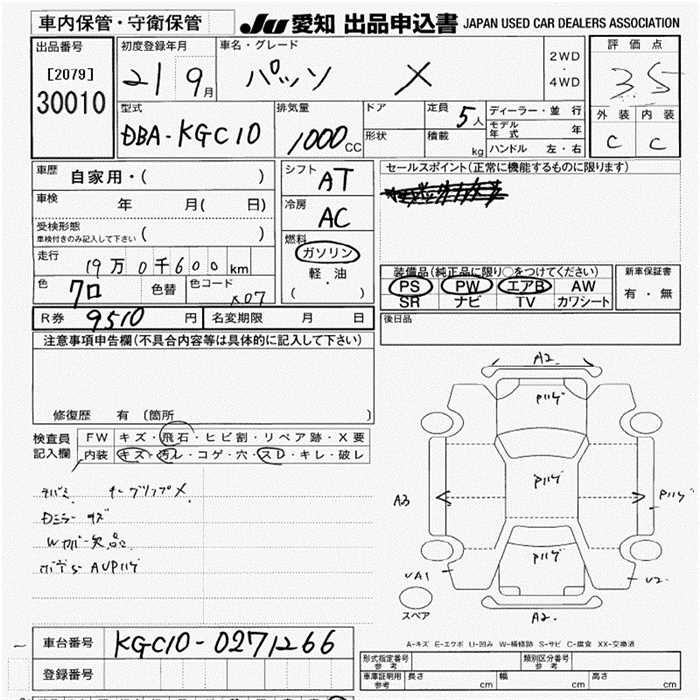 車内保管・守衛保管 JU 愛知 出品申込書 JAPAN USED CAR DEALERS ASSOCIATION
出品番号
[2079]
30010
初度登録年月
21 9月
車名・グレード
パッソ X
2WD
・
4WD
評価点
3.5
外装 内装
C C
型式
DBA-KGC10
排気量
1000cc
ドア
形状
定員
5人
積載
kg
ディーラー・並行
モデル年式 年
ハンドル 左・右
車歴
自家用・( )
車検 年 月( 日)
受検形態
車検付きのみ記入して下さい ( )
走行
19万0千600km
色
クロ
色替
色コード
X07
シフト
AT
冷房
AC
燃料
ガソリン
軽・油
( )
セールスポイント(正常に機能するものに限ります)
装備品(純正品に限り○をつけてください)
PS PW エアB AW
SR ナビ TV カワシート
新車保証書
有・無
R券 9510円 名変期限 月 日
後日品
注意事項申告欄(不具合内容等は具体的に記入して下さい)
修復歴 有 〔箇所 〕
検査員
記入欄
FW キズ・飛石・ヒビ割・リペア跡・X要
内装 キズ・汚レ・コゲ・穴・スレ・キレ・破レ
Dミラーキズ
Wカバー欠品
A2
A3
UA1
U2
A2
スペア
A-キズ E-エクボ U-凹み W-補修跡 S-サビ C-腐食 XX-交換済
車台番号 KGC10-0271266
登録番号
形式指定番号
参考
類別区分番号
参考
車庫証明用
参考
長さ cm 幅 cm 高さ cm